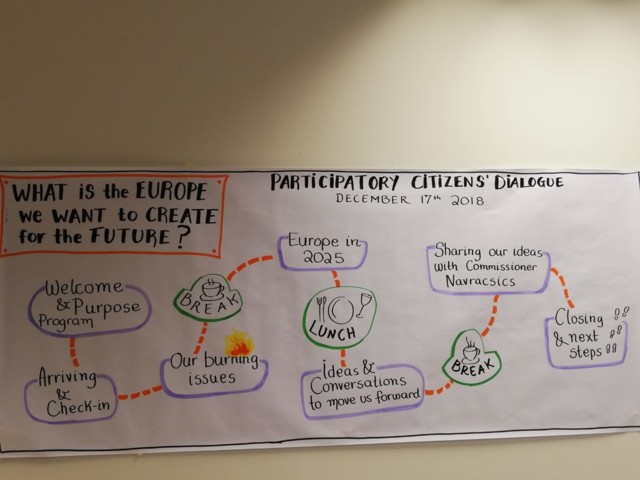 WHAT is the EUROPE
we WANT to CREATE
for the FUTURE?
PARTiCiPATORY CiTiZENS' DiALOGUE
DECEMBER 17th 2018
Welcome
& Purpose
Program
Arriving
&
Check-in
Our burning
issues
BREAK
Europe in
2025
LUNCH
ideas &
Conversations
to move us forward
BREAK
Sharing our ideas
with Commissioner
Navracsics
Closing
& next
steps